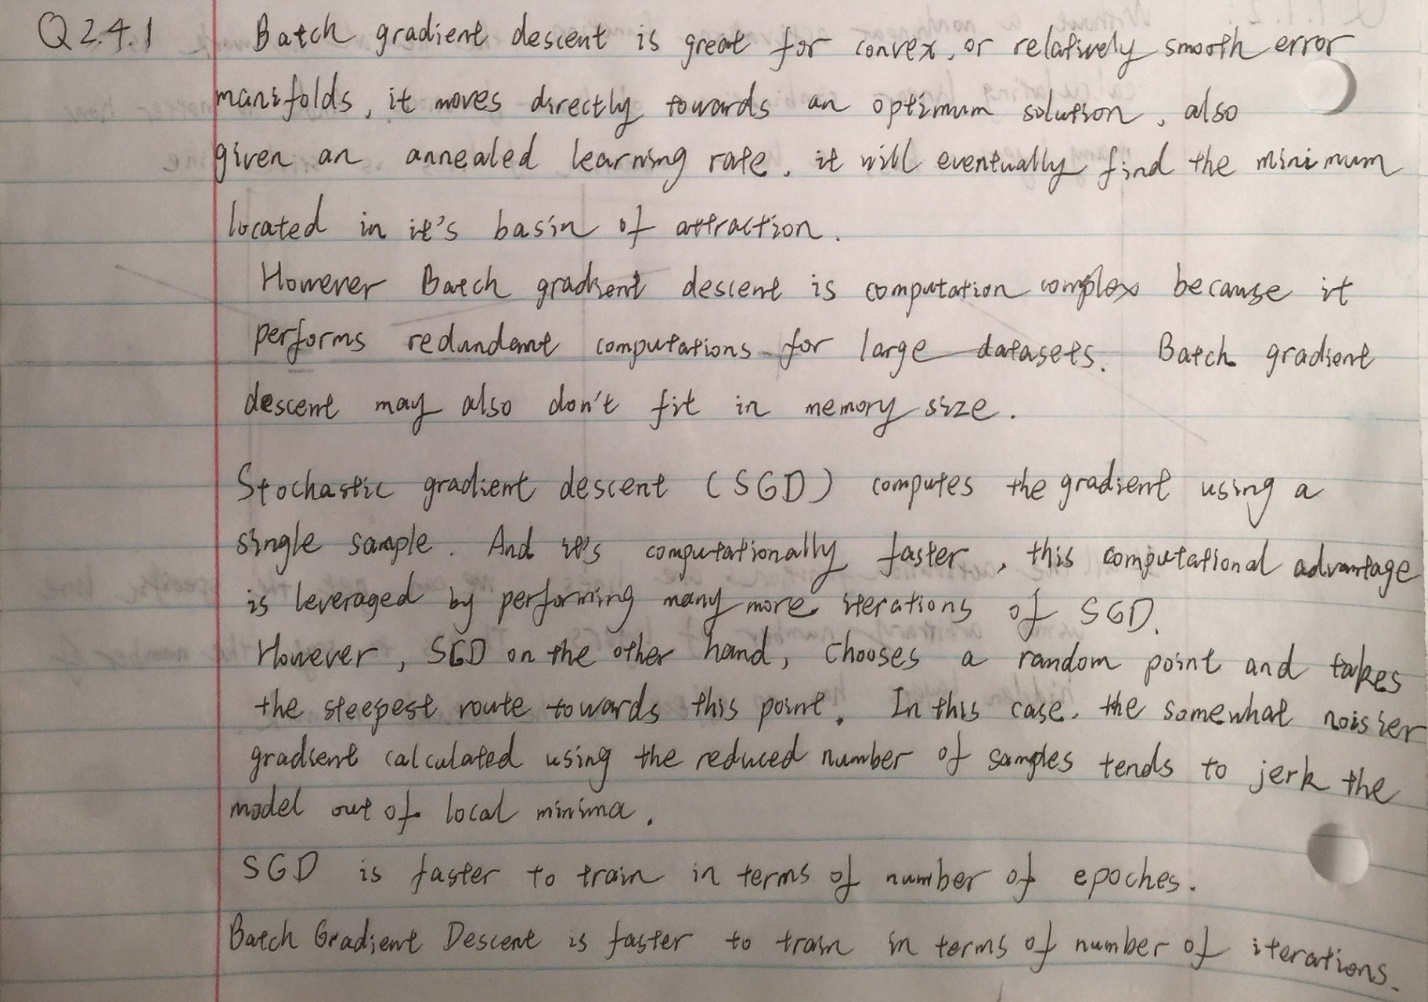 Q2.4.1 Batch gradient descent is great for convex, or relatively smooth error
manifolds, it moves directly towards an optimum solution, also
given an annealed learning rate, it will eventually find the minimum
located in it's basin of attraction.
However Batch gradient descent is computation complex because it
performs redundant computations for large datasets. Batch gradient
descent may also don't fit in memory size.
Stochastic gradient descent (SGD) computes the gradient using a
single sample. And it's computationally faster, this computational advantage
is leveraged by performing many more iterations of SGD.
However, SGD on the other hand, chooses a random point and takes
the steepest route towards this point. In this case, the somewhat noisier
gradient calculated using the reduced number of samples tends to jerk the
model out of local minima.
SGD is faster to train in terms of number of epoches.
Batch Gradient Descent is faster to train in terms of number of iterations.